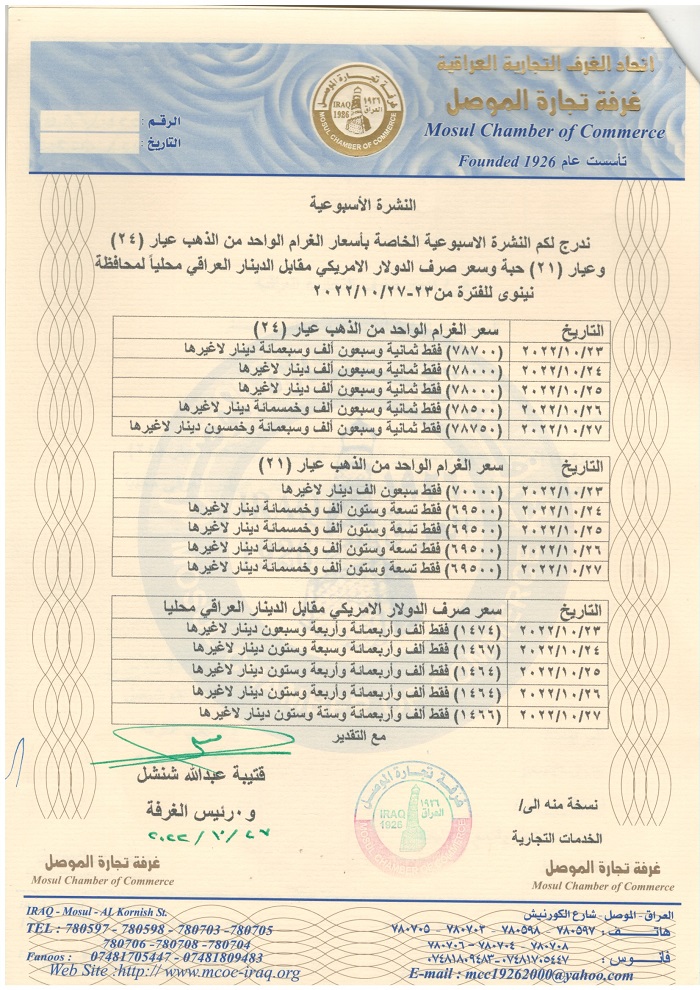 اتحاد الغرف التجارية العراقية
غرفة تجارة الموصل
Mosul Chamber of Commerce
تأسست عام Founded 1926
غرفة تجارة الموصل
IRAQ ١٩٢٦
1986 العراق
MOSUL CHAMBER OF COMMERCE
الرقم :
التاريخ :
النشرة الأسبوعية
ندرج لكم النشرة الاسبوعية الخاصة بأسعار الغرام الواحد من الذهب عيار (٢٤)
وعيار (٢١) حبة وسعر صرف الدولار الامريكي مقابل الدينار العراقي محلياً لمحافظة
نينوى للفترة من ٢٣-٢٠٢٢/١٠/٢٧
التاريخ سعر الغرام الواحد من الذهب عيار (٢٤)
٢٠٢٢/١٠/٢٣ (٧٨٧٠٠) فقط ثمانية وسبعون ألف وسبعمائة دينار لاغيرها
٢٠٢٢/١٠/٢٤ (٧٨٠٠٠) فقط ثمانية وسبعون ألف دينار لاغيرها
٢٠٢٢/١٠/٢٥ (٧٨٠٠٠) فقط ثمانية وسبعون ألف دينار لاغيرها
٢٠٢٢/١٠/٢٦ (٧٨٥٠٠) فقط ثمانية وسبعون ألف وخمسمائة دينار لاغيرها
٢٠٢٢/١٠/٢٧ (٧٨٧٥٠) فقط ثمانية وسبعون ألف وسبعمائة وخمسون دينار لاغيرها
التاريخ سعر الغرام الواحد من الذهب عيار (٢١)
٢٠٢٢/١٠/٢٣ (٧٠٠٠٠) فقط سبعون الف دينار لاغيرها
٢٠٢٢/١٠/٢٤ (٦٩٥٠٠) فقط تسعة وستون ألف وخمسمائة دينار لاغيرها
٢٠٢٢/١٠/٢٥ (٦٩٥٠٠) فقط تسعة وستون ألف وخمسمائة دينار لاغيرها
٢٠٢٢/١٠/٢٦ (٦٩٥٠٠) فقط تسعة وستون ألف وخمسمائة دينار لاغيرها
٢٠٢٢/١٠/٢٧ (٦٩٥٠٠) فقط تسعة وستون ألف وخمسمائة دينار لاغيرها
التاريخ سعر صرف الدولار الامريكي مقابل الدينار العراقي محليا
٢٠٢٢/١٠/٢٣ (١٤٧٤) فقط ألف وأربعمائة وأربعة وسبعون دينار لاغيرها
٢٠٢٢/١٠/٢٤ (١٤٦٧) فقط ألف وأربعمائة وسبعة وستون دينار لاغيرها
٢٠٢٢/١٠/٢٥ (١٤٦٤) فقط ألف وأربعمائة وأربعة وستون دينار لاغيرها
٢٠٢٢/١٠/٢٦ (١٤٦٤) فقط ألف وأربعمائة وأربعة وستون دينار لاغيرها
٢٠٢٢/١٠/٢٧ (١٤٦٦) فقط ألف وأربعمائة وستة وستون دينار لاغيرها
مع التقدير
قتيبة عبدالله شنشل
و٠رئيس الغرفة
٢٠٢٢/١٠/٢٧
نسخة منه الى/
الخدمات التجارية
غرفة تجارة الموصل
IRAQ ١٩٢٦
1926 العراق
غرفة تجارة الموصل
Mosul Chamber of Commerce
غرفة تجارة الموصل
Mosul Chamber of Commerce
العراق - الموصل - شارع الكورنيش
هاتف : ٧٨٠٥٩٧ - ٧٨٠٥٩٨ - ٧٨٠٧٠٣ - ٧٨٠٧٠٥
٧٨٠٧٠٨ - ٧٨٠٧٠٤ - ٧٨٠٧٠٦
فانوس : ٠٧٤٨١٧٠٥٤٤٧ - ٠٧٤٨١٨٠٩٤٨٣
E-mail : mcc19262000@yahoo.com
IRAQ - Mosul - AL Kornish St.
TEL : 780597 - 780598 - 780703 -780705
780706 -780708 -780704
Fanoos : 07481705447 - 07481809483
Web Site :http// www.mcoc-iraq.org